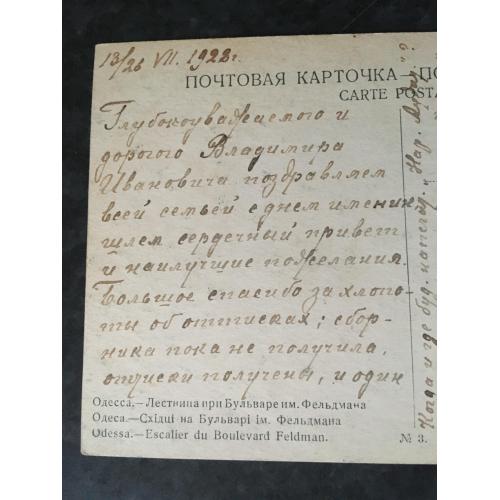 13/26 VII. 1928 г.
ПОЧТОВАЯ КАРТОЧКА—ПО
CARTE POSTA
Глубокоуважаемого и
дорогого Владимира
Ивановича поздравляем
всей семьей с днем именин,
шлем сердечный привет
и наилучшие пожелания.
Большое спасибо за хлопо-
ты об оттисках; сбор-
ника пока не получила,
оттиски получены, и один
Одесса.—Лестница при Бульваре им. Фельдмана
Одеса.—Східці на Бульварі ім. Фельдмана
Odessa.—Escalier du Boulevard Feldman.
№ 3.
Когда и где буд. напеч. „Нар.